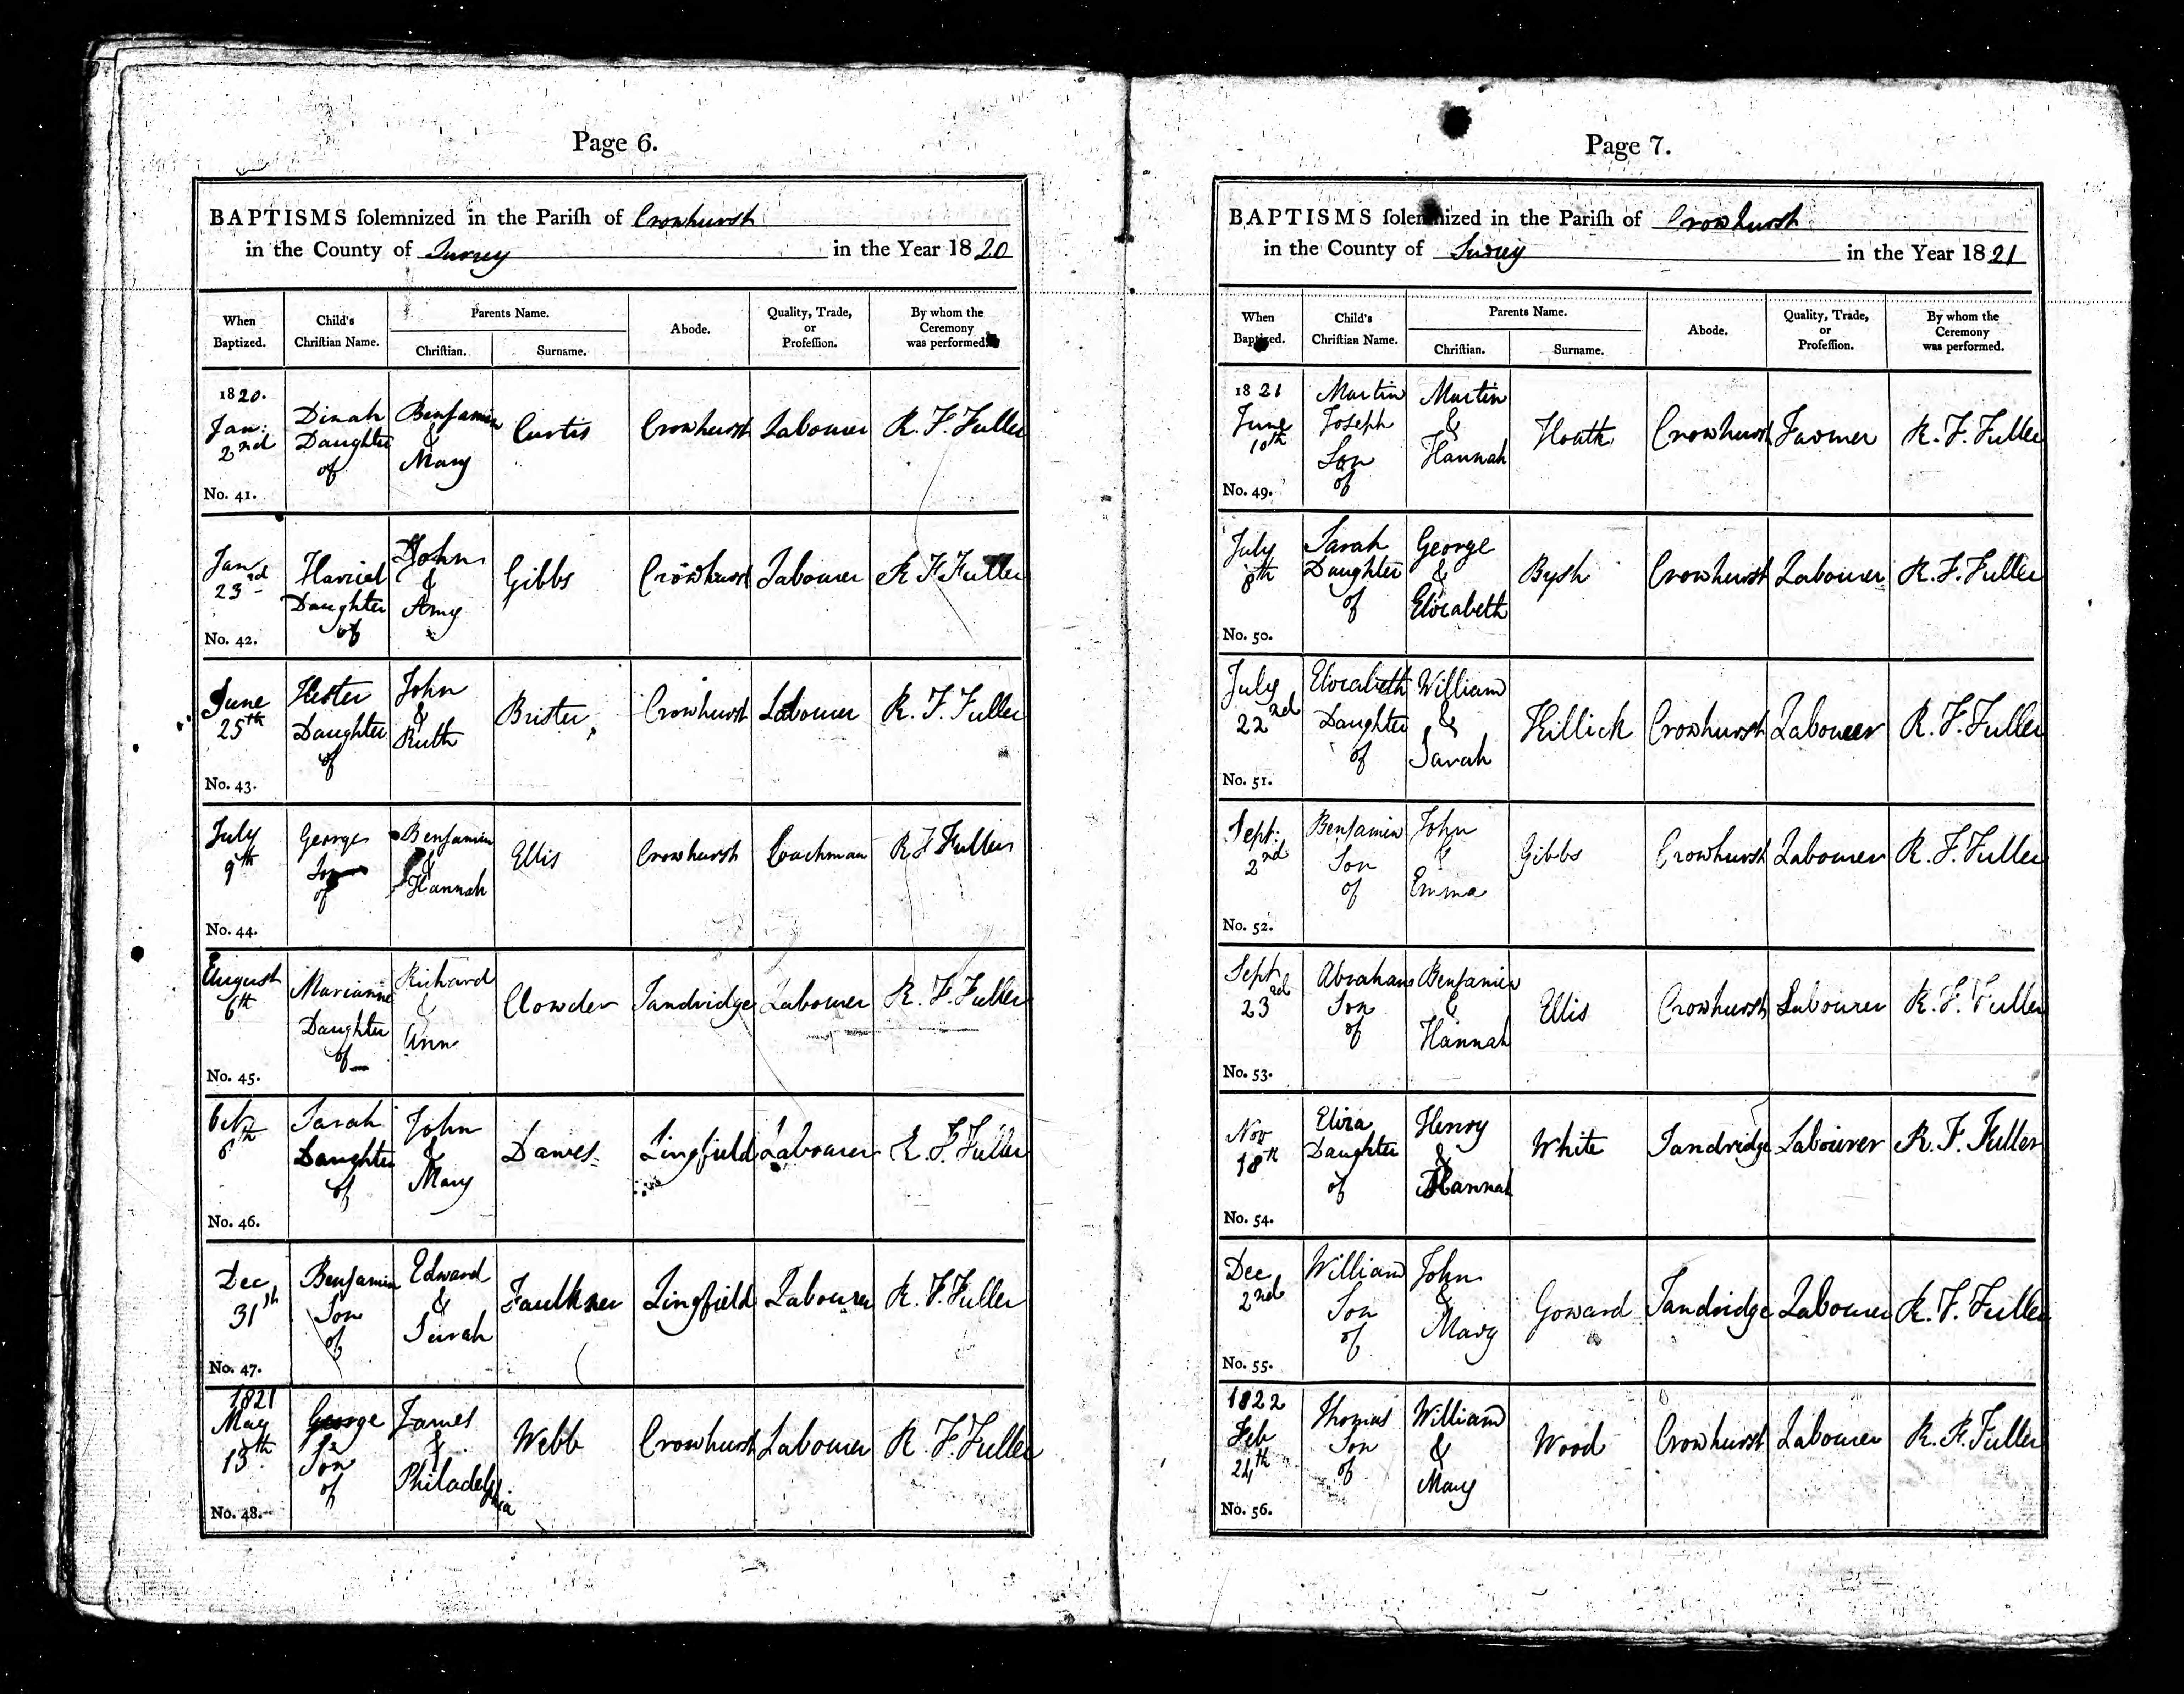 Page 6.
BAPTISMS ſolemnized in the Pariſh of Crowhurst
in the County of Surrey in the Year 1820
When Baptized. Child's Chriſtian Name. Parents Name. Chriſtian. Surname. Abode. Quality, Trade, or Profeſſion. By whom the Ceremony was performed.
1820. Jan: 2nd No. 41. Dinah Daughter of Benjamin & Mary Curtis Crowhurst Labourer R. F. Fuller
Jan 23rd No. 42. Harriet Daughter of John & Amy Gibbs Crowhurst Labourer R F Fuller
June 25th No. 43. Hester Daughter of John & Ruth Brister Crowhurst Labourer R. F. Fuller
July 9th No. 44. George Son of Benjamin & Hannah Ellis Crowhurst Coachman R F Fuller
August 6th No. 45. Marianne Daughter of Richard & Ann Clowder Tandridge Labourer R. F. Fuller
Oct 8th No. 46. Sarah Daughter of John & Mary Dawes Lingfield Labourer R. F. Fuller
Dec 31st No. 47. Benjamin Son of Edward & Sarah Faulkner Lingfield Labourer R. F. Fuller
1821 May 13th No. 48. George Son of James & Philadelphia Webb Crowhurst Labourer R. F. Fuller
Page 7.
BAPTISMS ſolemnized in the Pariſh of Crowhurst
in the County of Surrey in the Year 1821
When Baptized. Child's Chriſtian Name. Parents Name. Chriſtian. Surname. Abode. Quality, Trade, or Profeſſion. By whom the Ceremony was performed.
1821 June 10th No. 49. Martin Joseph Son of Martin & Hannah Heath Crowhurst Farmer R. F. Fuller
July 8th No. 50. Sarah Daughter of George & Elizabeth Bysh Crowhurst Labourer R. F. Fuller
July 22nd No. 51. Elizabeth Daughter of William & Sarah Killick Crowhurst Labourer R. F. Fuller
Sept: 2nd No. 52. Benjamin Son of John & Emma Gibbs Crowhurst Labourer R. F. Fuller
Sept 23rd No. 53. Abraham Son of Benjamin & Hannah Ellis Crowhurst Labourer R. F. Fuller
Nov 18th No. 54. Eliza Daughter of Henry & Hannah White Tandridge Labourer R. F. Fuller
Dec 2nd No. 55. William Son of John & Mary Goward Tandridge Labourer R. F. Fuller
1822 Feb 24th No. 56. Thomas Son of William & Mary Wood Crowhurst Labourer R. F. Fuller